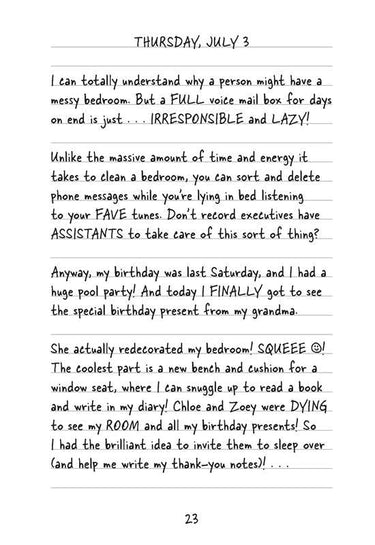 THURSDAY, JULY 3
I can totally understand why a person might have a
messy bedroom. But a FULL voice mail box for days
on end is just . . . IRRESPONSIBLE and LAZY!
Unlike the massive amount of time and energy it
takes to clean a bedroom, you can sort and delete
phone messages while you're lying in bed listening
to your FAVE tunes. Don't record executives have
ASSISTANTS to take care of this sort of thing?
Anyway, my birthday was last Saturday, and I had a
huge pool party! And today I FINALLY got to see
the special birthday present from my grandma.
She actually redecorated my bedroom! SQUEEE ☺!
The coolest part is a new bench and cushion for a
window seat, where I can snuggle up to read a book
and write in my diary! Chloe and Zoey were DYING
to see my ROOM and all my birthday presents! So
I had the brilliant idea to invite them to sleep over
(and help me write my thank-you notes)! . . .
23